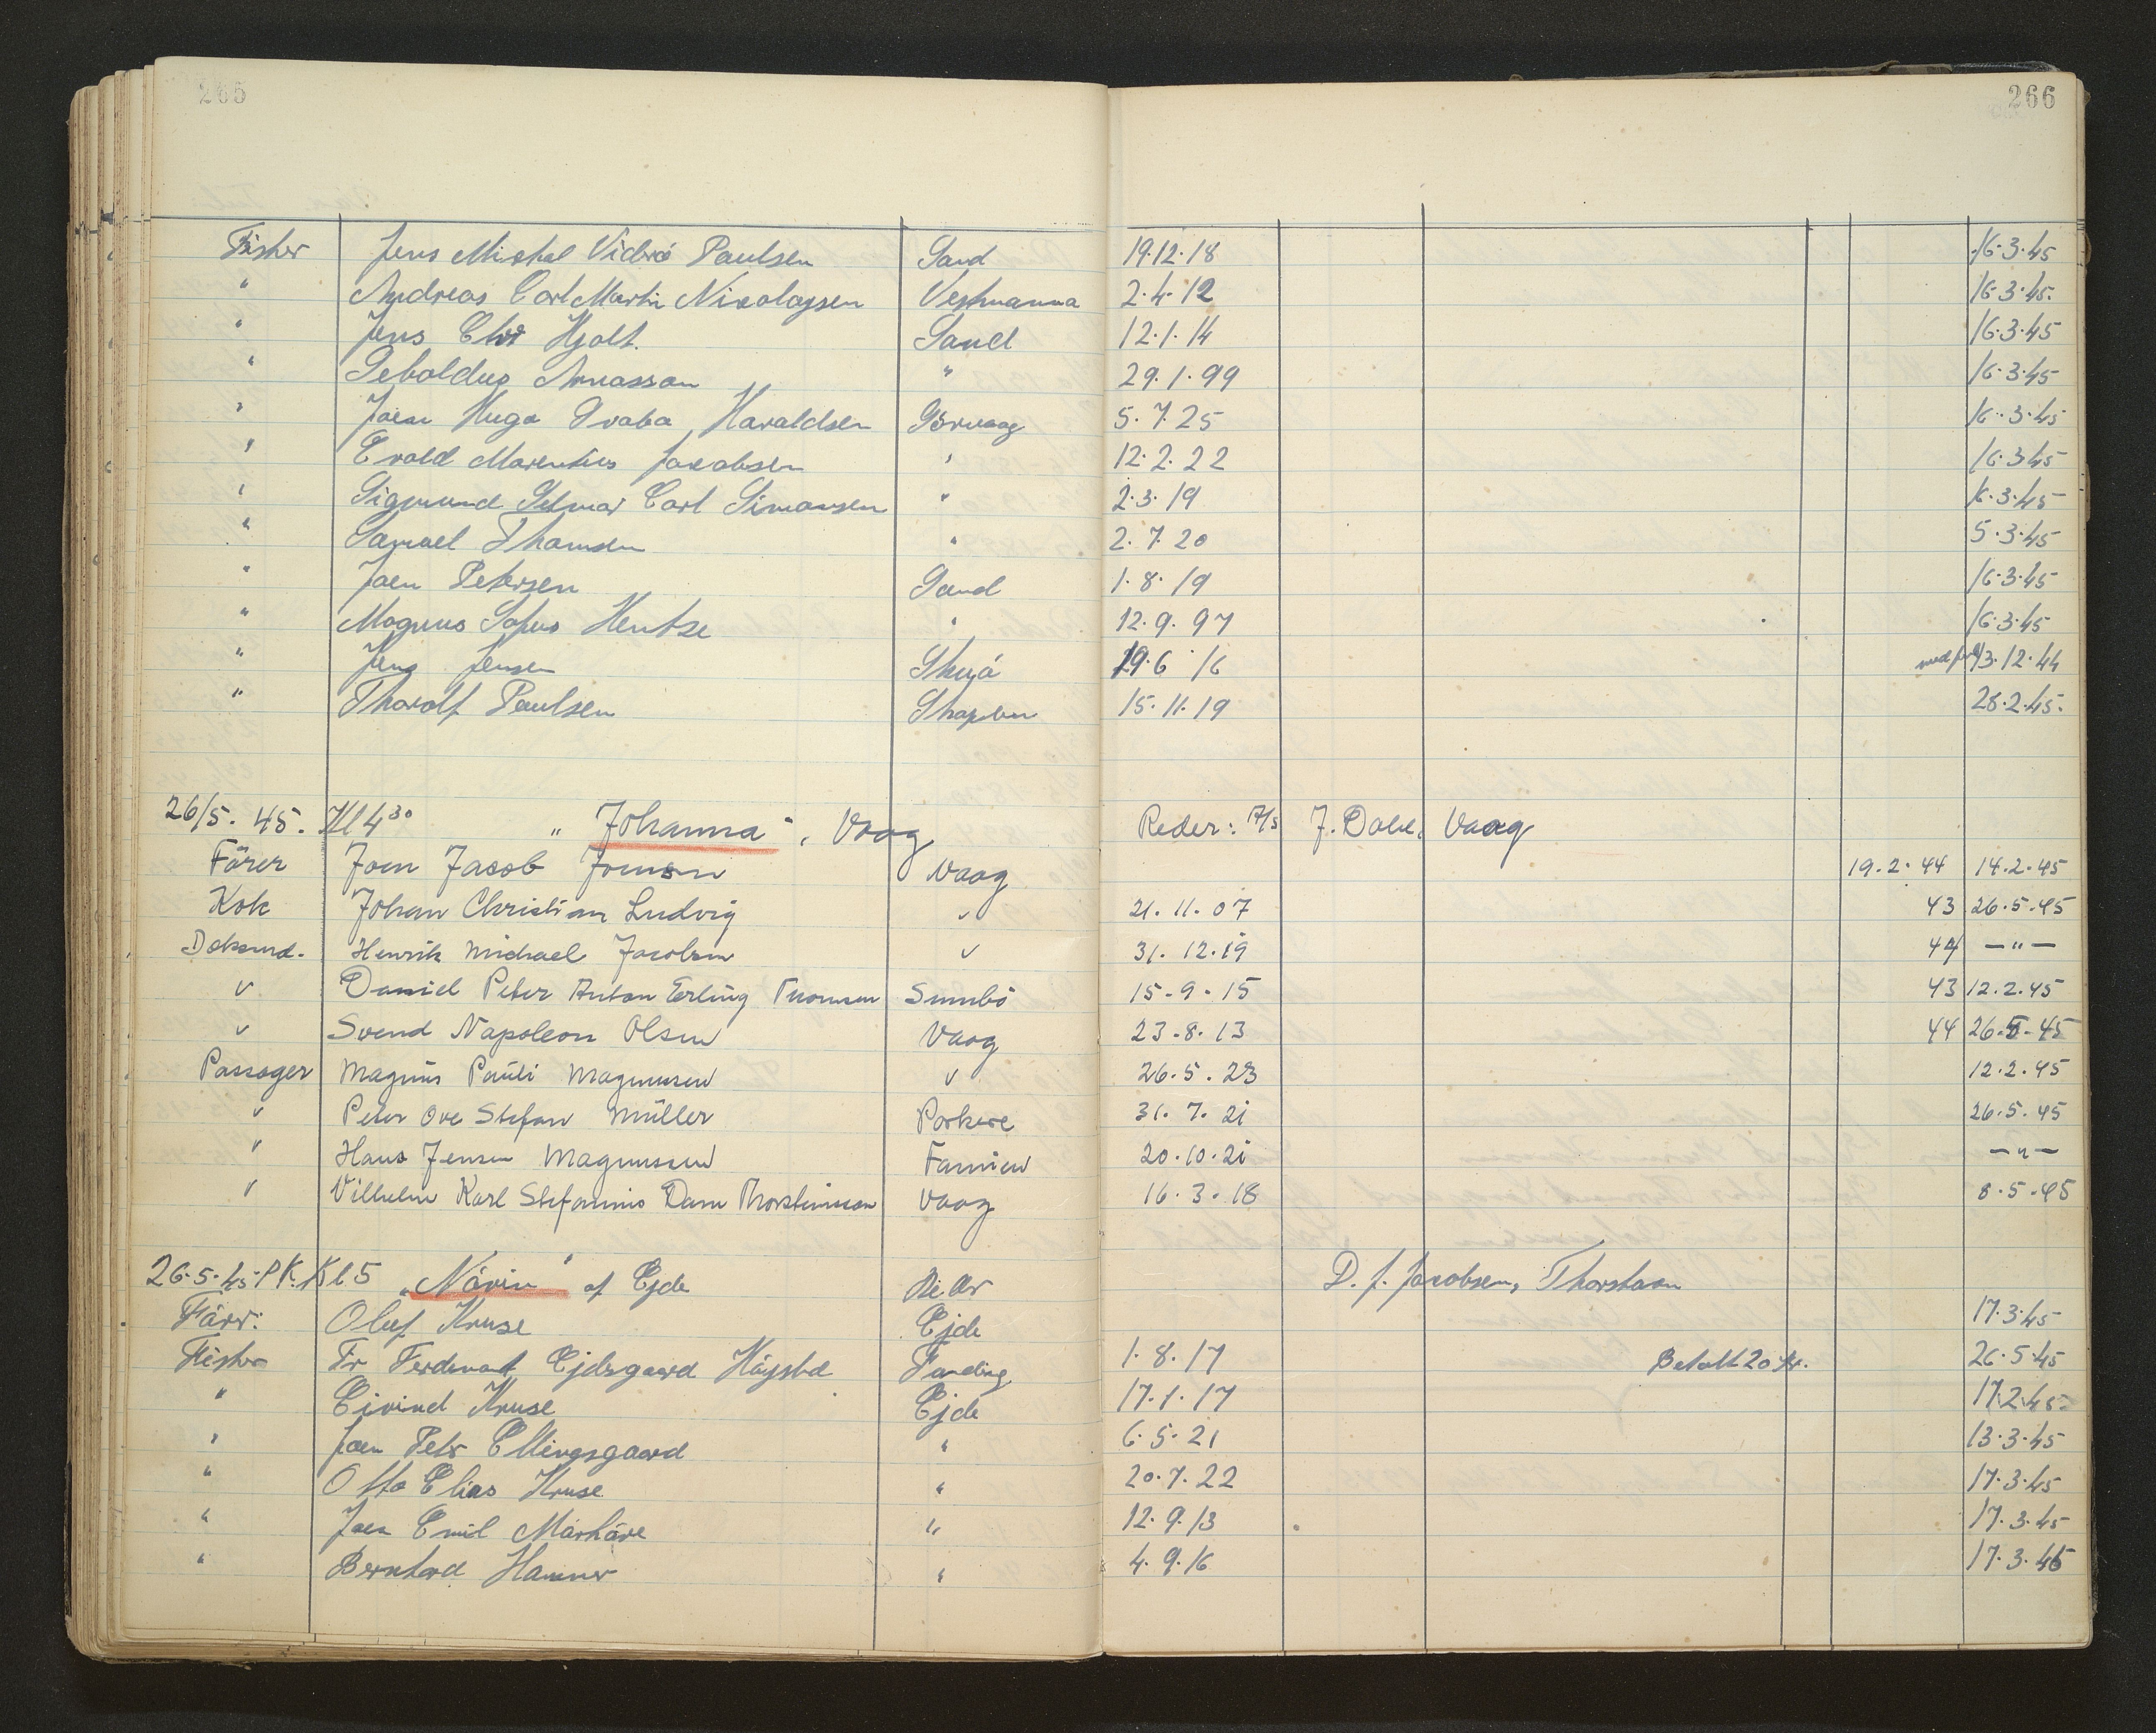 265 266
Fisker Jens Michal Viderö Paulsen Sand 19.12.18 16.3.45
" Andreas Carl Martin Nicolaysen Vestmanna 2.4.12 16.3.45.
" Jens Chr Hjalt. Sand 12.1.14 16.3.45
" Seboldus Arnasson " 29.1.99 16.3.45
" Joen Hugo Svaba Haraldsen Sörvaag 5.7.25 16.3.45
" Evald Marentius Jacobsen " 12.2.22 16.3.45
" Sigmund Selmar Carl Simonsen " 2.3.19 16.3.45
" Samuel Thomsen " 2.7.20 5.3.45
" Joen Petersen Sand 1.8.19 16.3.45
" Magnus Sofus Hentze " 12.9.97 16.3.45
" Jens Jensen 19.6.16 13.12.44
" Thorolf Paulsen 15.11.19 28.2.45.
26/5. 45. Kl 4³⁰ "Johanna", Vaag Reder: A/s J. Dahl, Vaag
Förer Joen Jacob Joensen Vaag 19.2.44 14.2.45
Kok Johan Christian Ludvig " 21.11.07 43 26.5.45
Doksmd. Henrik Michael Jacobsen " 31.12.19 44 — " —
" Daniel Peter Anton Erling Thomsen Sumbö 15-9-15 43 12.2.45
" Svend Napoleon Olsen Vaag 23.8.13 44 26.5-45
Passager Magnus Pauli Magnussen " 26.5.23 12.2.45
" Peter Ove Stefan Müller Porkere 31.7.21 26.5.45
" Hans Jensen Magnussen Famien 20.10.21 — " —
" Vilhelm Karl Stefanius Dam Thorsteinsson Vaag 16.3.18 8.5.45
26.5.45 P.K. Kl 5 "Návin" af Ejde Reder D. J. Jacobsen, Thorshavn
Förer: Oluf Kruse Ejde 17.3.45
Fisker Fr Ferdinant Ejdesgaard Höjsted Funding 1.8.17 Betalt 20 kr. 26.5.45
" Eivind Kruse Ejde 17.1.17 17.2.45.
" Joen Petr Ellingsgaard " 6.5.21 13.3.45
" Otto Elias Kruse " 20.7.22 17.3.45
" Joen Emil Mørköre " 12.9.13 17.3.45
" Bernhard Hammer " 4.9.16 17.3.45